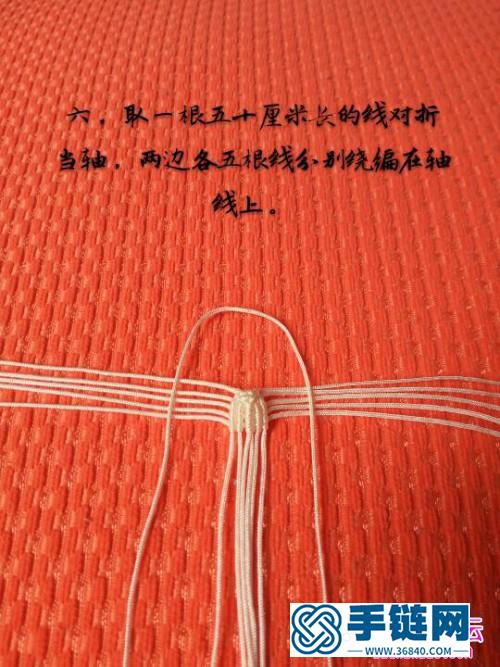 六，取一根五十厘米长的线对折
当轴，两边各五根线分别绕编在轴
线上。
手链网
www.36840.com